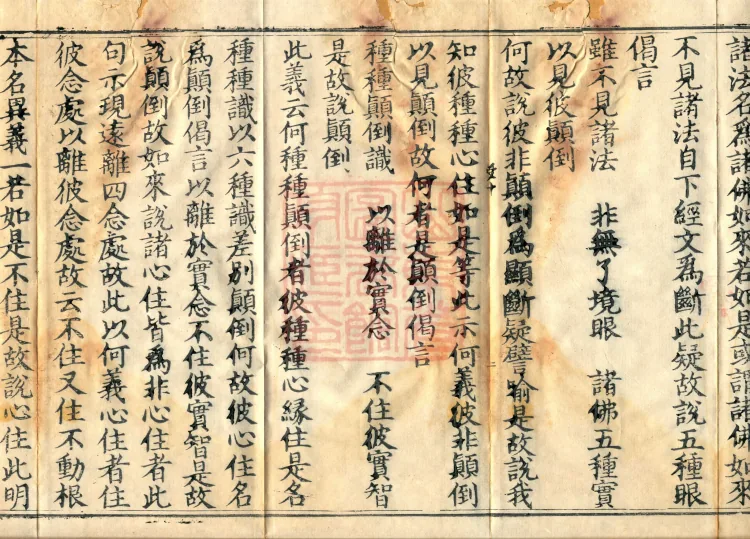 諸法名爲諸佛如來若如是或謂諸佛如來
不見諸法自下經文爲斷此疑故說五種眼
偈言
雖不見諸法 非無了境眼 諸佛五種實
以見彼顛倒
何故說彼非顛倒爲顯斷疑譬喻是故說我
知彼種種心住如是等此示何義彼非顛倒
以見顛倒故何者是顛倒偈言
種種顛倒識 以離於實念 不住彼實智
是故說顛倒
此義云何種種顛倒者彼種種心緣住是名
種種識以六種識差別顛倒何故彼心住名
爲顛倒偈言以離於實念不住彼實智是故
說顛倒故如來說諸心住皆爲非心住者此
句示現遠離四念處故此以何義心住者住
彼念處以離彼念處故云不住又住不動根
本名異義一若如是不住是故說心住此明